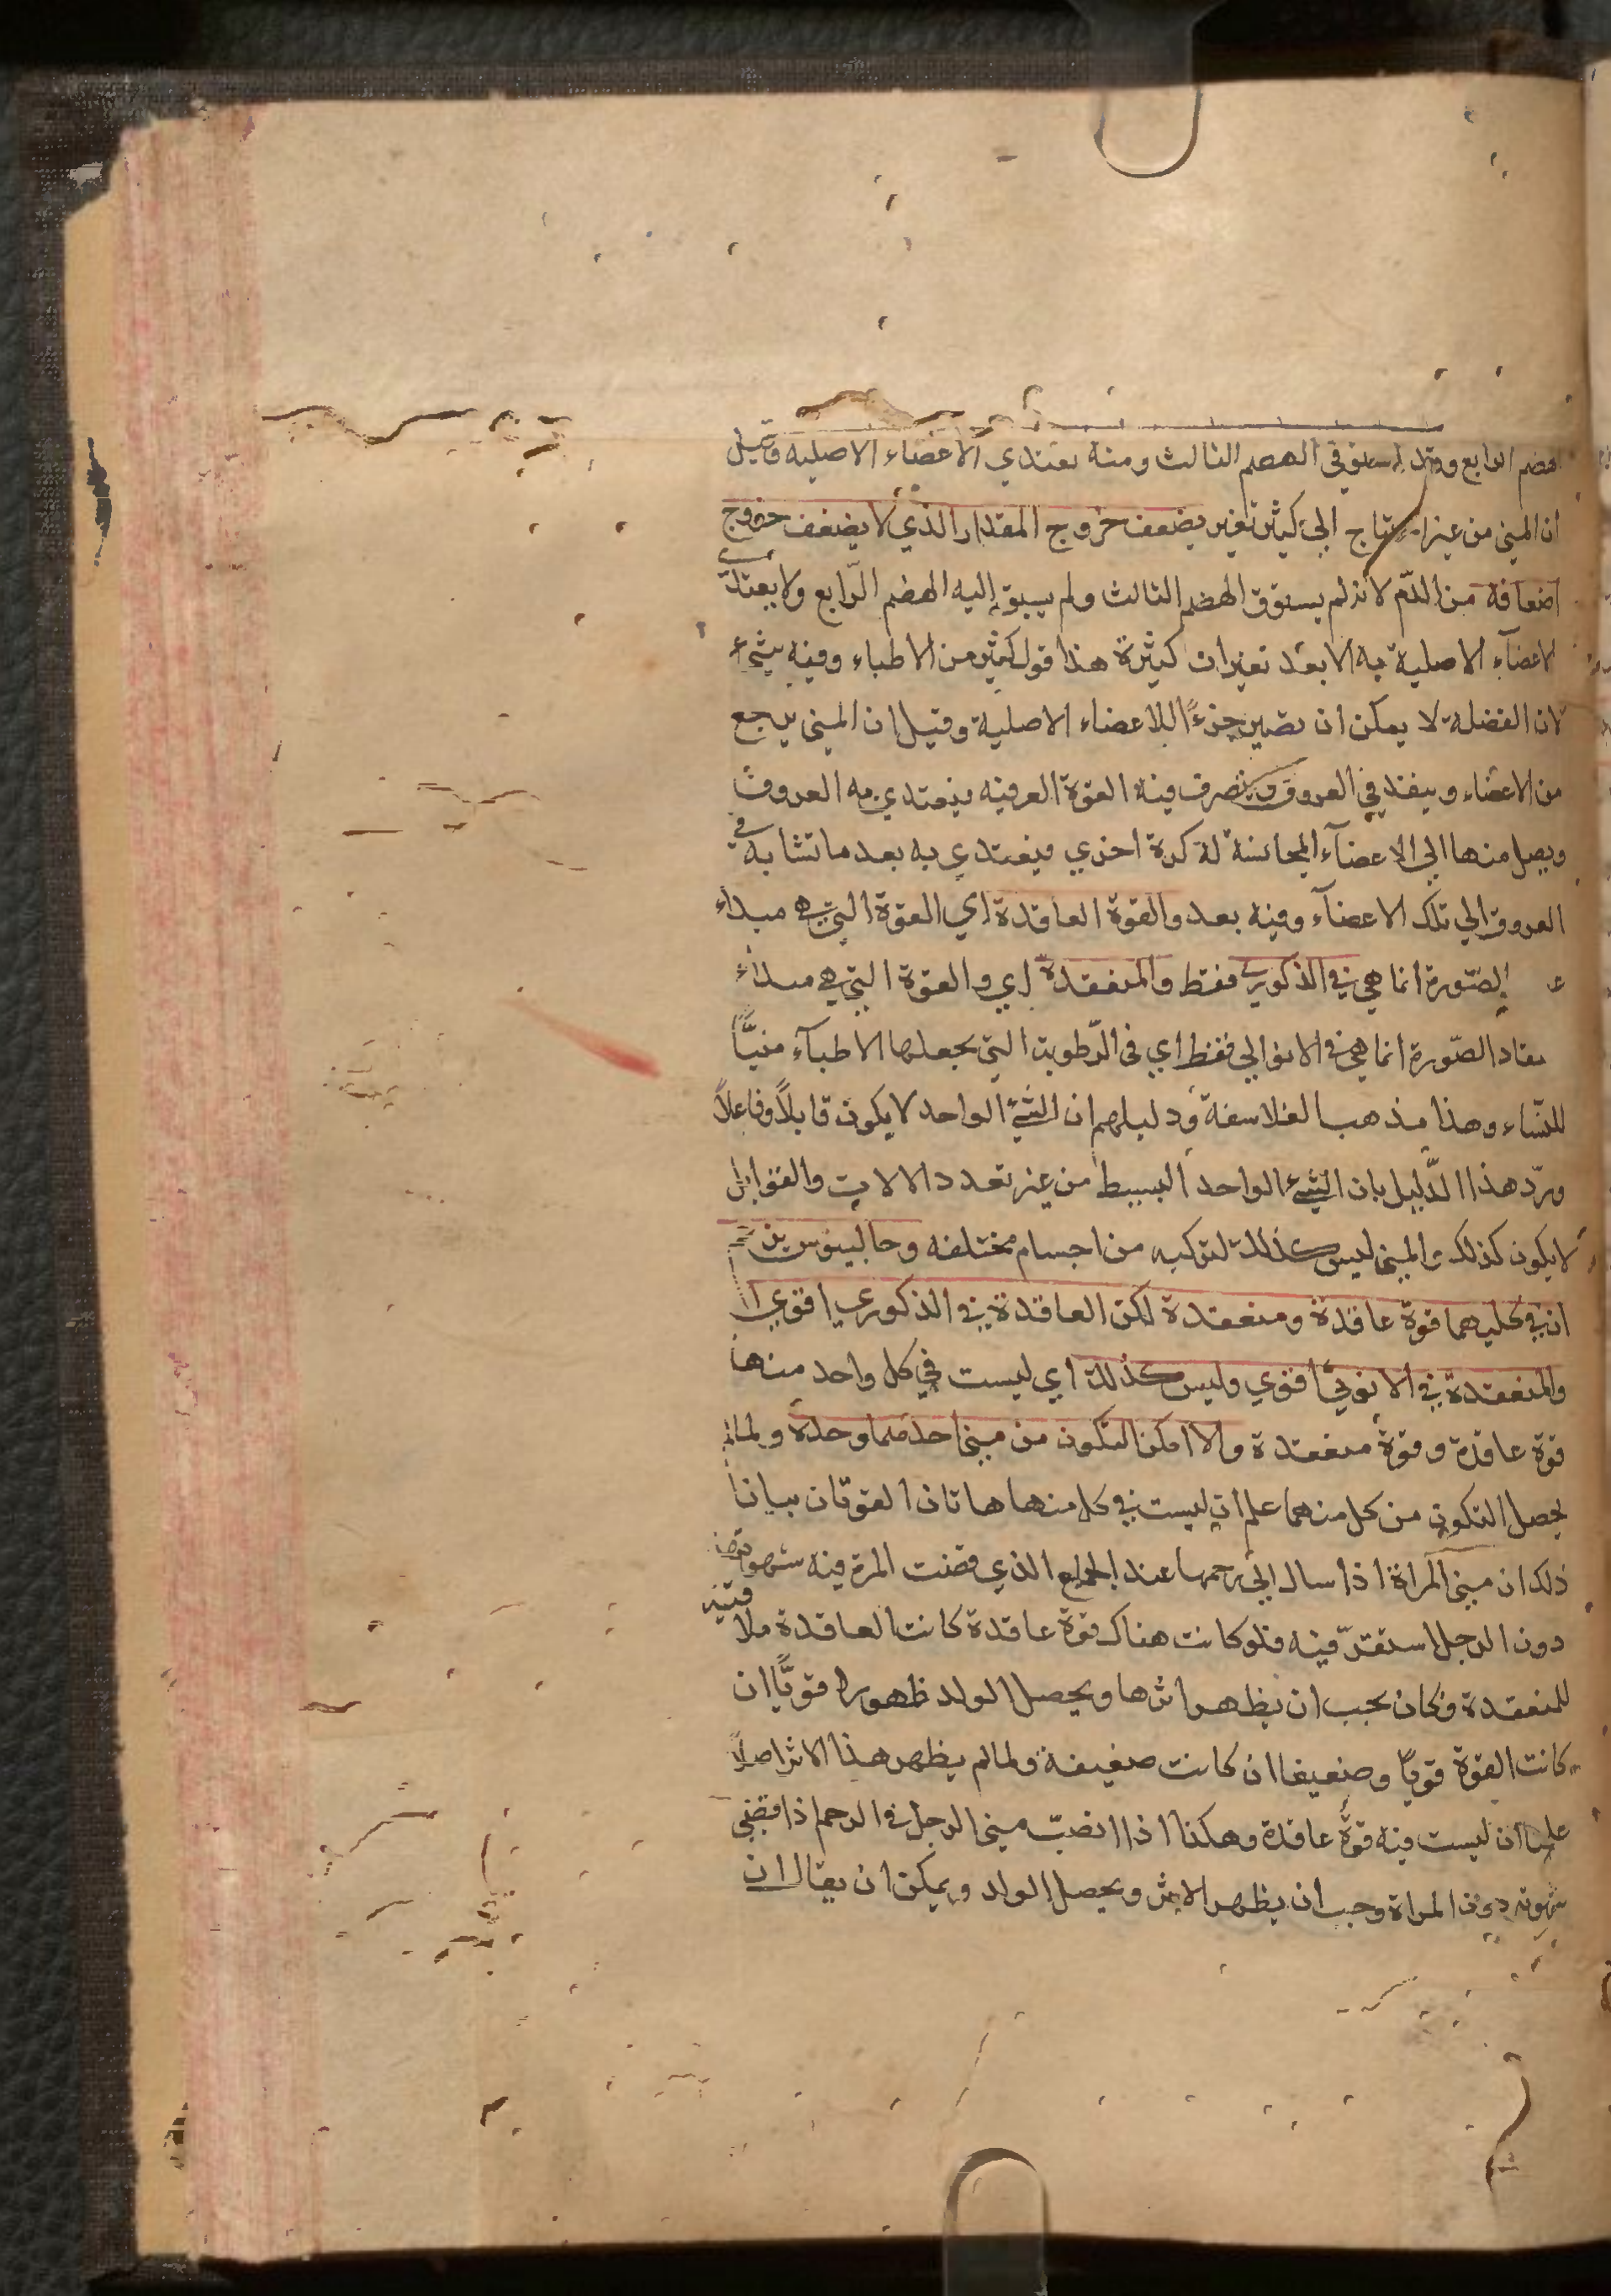 الهضم الرابع وقد استوفى الهضم الثالث ومنه يغتذي الاعضاء الاصليه وقيل
ان المني من غير احتياج الى كثير تغير يضعف خروج المقدار الذي لا يضعف خروج
اضعافه من الدّم لانه لم يستوف الهضم الثالث ولم يسبق إليه الهضم الرّابع ولا يغتذي
الاعضآء الاصلية به الا بعد تغيرات كثيرة هذا قول كثير من الاطباء وفيه شيء
لان الفضلة لا يمكن ان تصير جزءًا للاعضاء الاصلية وقيل ان المني يرجع
من الاعضاء وينفذ في العروق ويتصرف فيه القوة العرقيه فيغتدي به العروق
ويصل منها الى الاعضآء المجانسة له كرة اخري فيغتدي به بعد ما تشابه في
العروق الي تلك الاعضآء وفيه بعد والقوة العاقدة اي القوة التي هي مبداء
الصّورة انما هي في الذكوري فقط والمنعقدة اي والقوة التي هي مبداء
الصّورة انما هي في الانوثي فقط اي في الرّطوبة التي يجعلها الاطبآء منيًّا
للنّساء وهذا مذهب الفلاسفة ودليلهم ان الشيء الواحد لا يكون قابلاً وفاعلاً
وردّ هذا الدّليل بان الشيء الواحد البسيط من غير تعدد الالات والقوابل
لا يكون كذلك والمني ليس كذلك لتركبه من اجسام مختلفه وجالينوس يزعم
ان في كليهما قوة عاقدة ومنعقدة لكن العاقدة في الذكوري اقوي
والمنعقدة في الانوثي اقوي وليس كذلك اي ليست في كل واحد منها
قوة عاقدة وقوة منعقدة والا امكن التكون من مني احدهما وحده ولما لم
يحصل التكون من كل منهما علم ان ليست في كل منها هاتان القوتان بيان
ذلك ان مني المراة اذا سال الي رحمها عند الجماع الذي قضت المرة فيه شهوتها
دون الرجل استقرّ فيه فلو كانت هناك قوة عاقدة كانت العاقدة ملاقية
للمنعقدة وكان يجب ان يظهر اثرها ويحصل الولد ظهورا قويًّا ان
كانت القوة قويّة وضعيفا ان كانت ضعيفة ولما لم يظهر هذا الاثر اصلاً
علمنا ان ليست فيه قوّة عاقدة وهكذا اذا انصبّ مني الرجل في الرحم اذا قضي
شهوته دون المراة وجب ان يظهر الاثر ويحصل الولد ويمكن ان يقال ان